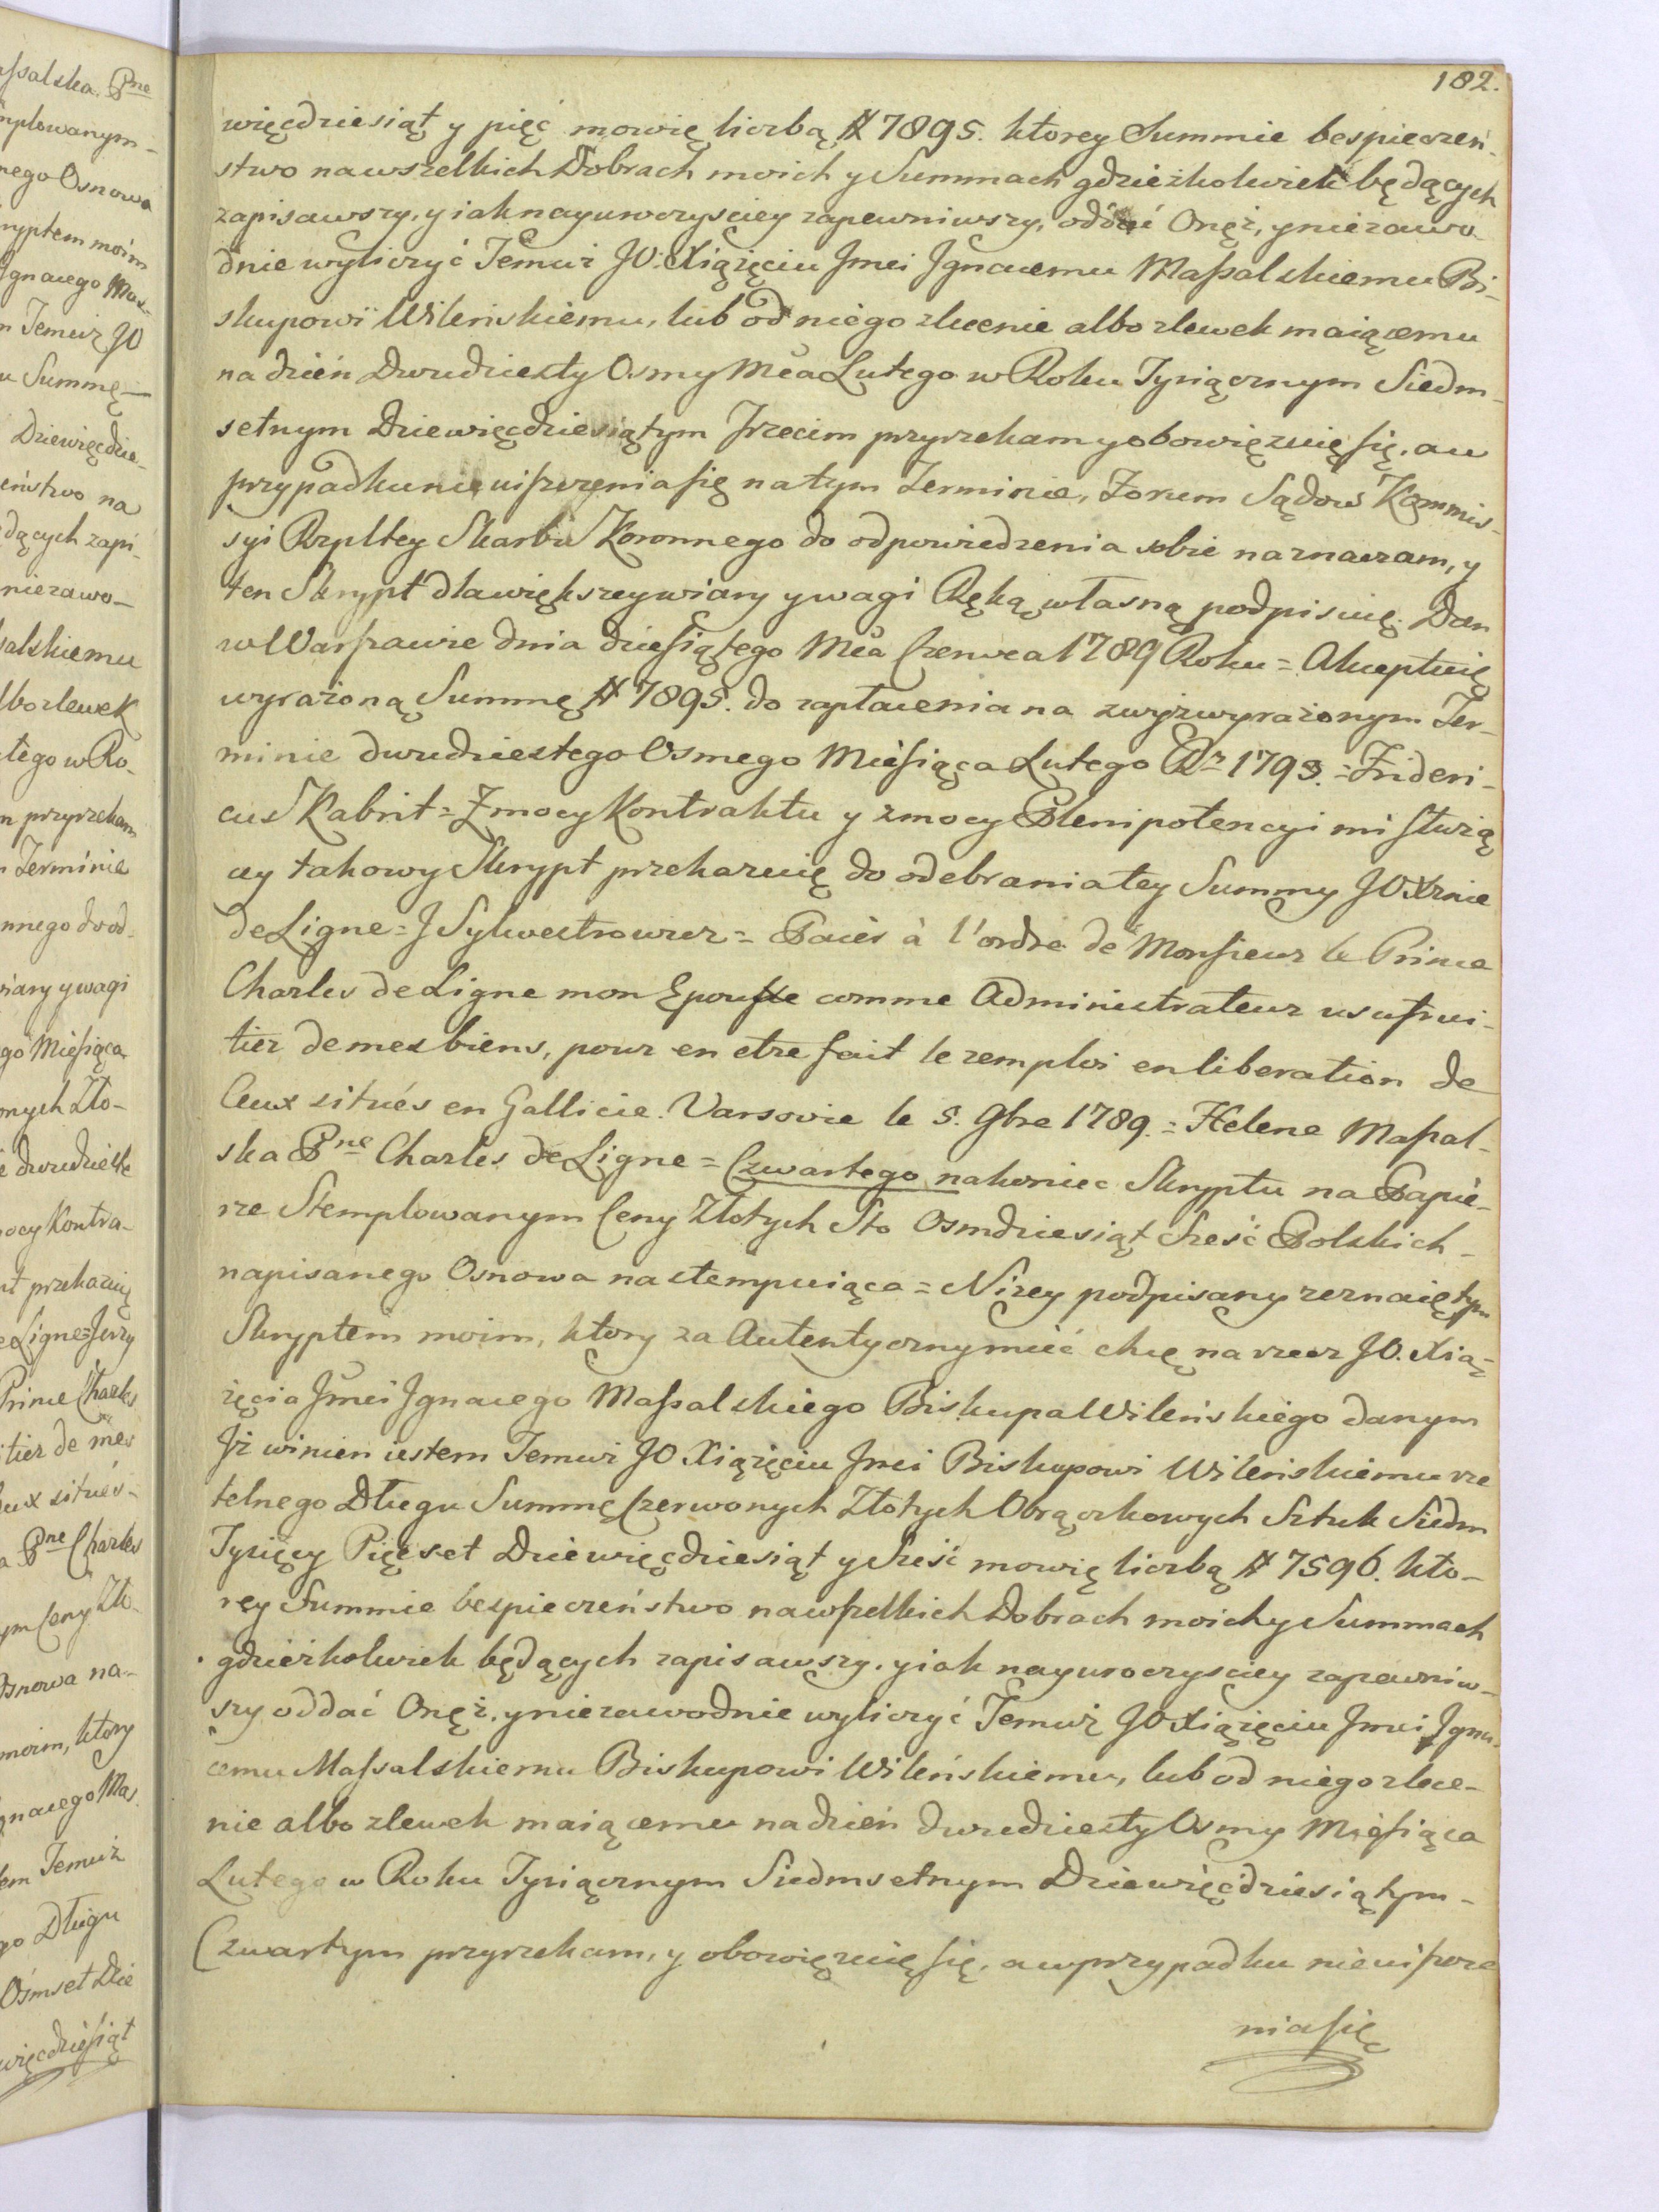 182.
więcdziesiąt y pięć mowię liczbą # 7895. ktorey Summie bespieczeń-
stwo na wszelkich Dobrach moich y Summach gdzieżkolwiek będących
zapisawszy, y iak nayuroczysciey zapewniwszy, oddać Onęż, y niezawo-
dnie wyliczyć Temuż JO: Xiążęciu Jmci Jgnacemu Maßalskiemu Bi-
skupowi Wileńskiemu, lub od niego zlecenie albo zlewek maiącemu
na dzień Dwudziesty Osmy Mca Lutego w Roku Tysiącznym Siedm-
setnym Dziewięcdziesiątym Trzecim przyrzekam y obowięzuię się, a w
przypadku nieuiszczenia się na tym Terminie, Forum Sądow Kommis-
syi Rzpltey Skarbu Koronnego do odpowiedzenia sobie naznaczam, y
ten Skrypt dla większey wiary y wagi Ręką własną podpisuię. Dan
w Warszawie dnia dziesiątego Mca Czerwca 1789 Roku = Akceptuię
wyrażoną Summę # 7895. do zapłacenia na zwyżwyrażonym Ter-
minie dwudziestego Osmego Miesiąca Lutego Rr 1793. = Frideri-
cus Kabrit = Z mocy Kontraktu y z mocy Plenipotencyi mi służą
cey takowy Skrypt przekazuię do odebrania tey Summy JO Xżnie
de Ligne = J Sylwestrowicz = Païés à l'ordre de Monsieur le Prince
Charles de Ligne mon Epouse comme Administrateur usufrui-
tier de mes biens, pour en etre fait le remploi en liberation de
Ceux situés en Gallicie. Varsovie le 5. 9bre 1789. = Helene Maßal-
ska Pne Charles de Ligne = Czwartego nakoniec Skryptu na Papie-
rze Stemplowanym Ceny Złotych Sto Osmdziesiąt Szesć Polskich -
napisanego Osnowa nastempuiąca = Niżey podpisany zeznaię tym
Skryptem moim, ktory za Autentyczny mieć chcę na rzecz JO. Xią-
żęcia Jmci Jgnacego Maßalskiego Biskupa Wileńskiego danym
Jż winien iestem Temuż JO Xiążęciu Jmci Biskupowi Wileńskiemu rze
telnego Długu Summę Czerwonych Złotych Obrączkowych Sztuk Siedm
Tysięcy Pięcset Dziewięcdziesiąt y Sześć mowię liczbą # 7596. kto-
rey Summie bespieczeństwo na wszelkich Dobrach moich y Summach
gdzieżkolwiek będących zapisawszy, y iak nayuroczysciey zapewniw-
szy oddać Onęż, y niezawodnie wyliczyć Temuż JO Xiążęciu Jmci Jgna-
cemu Massalskiemu Biskupowi Wileńskiemu, lub od niego zlece-
nie albo zlewek maiącemu na dzień dwudziesty Osmy Miesiąca
Lutego w Roku Tysiącznym Siedmsetnym Dziewięćdziesiątym -
Czwartym przyrzekam, y obowięzuię się, a w przypadku nieuiszcze
nia się